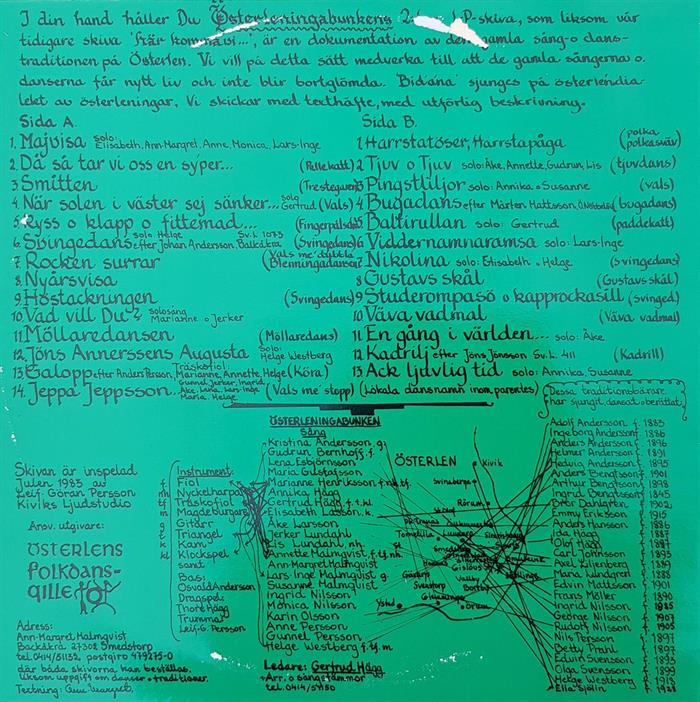 I din hand håller Du Österleningabunkens 2 P-skiva, som liksom vår
tidigare skiva ', är en dokumentation av den gamla sång-o dans-
traditionen på Österlen. Vi vill på detta sätt medverka till att de gamla sångerna o.
danserna får nytt liv och inte blir bortglömda. 'Bidana' sjunges på österlendia-
lekt av österleningar. Vi skickar med texthäfte, med utförlig beskrivning.
Sida A.
1. Majvisa solo: Elisabeth, Ann-Margret, Anne, Monica, Lars-Inge
2. Då så tar vi oss en syper... (Pellekatt)
3. Smitten (Trestegaren)
4. När solen i väster sej sänker... solo Gertrud (Vals)
5. Ryss o klapp o fittemad... (Fingerpålsdans)
6. Svingedans solo: Helge efter Johan Andersson, Balkåkra Sv.L. 1073 (Svingedans)
7. Rocken surrar (Vals me' dubbla Blenningadansen)
8. Nyårsvisa
9. Höstackningen (Svingedans)
10. Vad vill Du? solosång Marianne o Jerker
11. Möllaredansen (Möllaredans)
12. Jöns Annerssens Augusta solo Helge Westberg
13. Galopp efter Anders Persson, Träskofiol: Marianne, Annette, Helge (Köra) Gunnel, Jerker, Ingrid, Åke, Lena, Lars-Inge, Maria, Helge
14. Jeppa Jeppsson... (Vals me' stopp)
Sida B.
1. Harrstatöser, Harrstapåga (polka polkasväv)
2. Tjuv o Tjuv solo: Åke, Annette, Gudrun, Lis (tjuvdans)
3. Pingstliljor solo: Annika o Susanne (vals)
4. Bugadans efter Mårten Mattsson, (bugadans)
5. Baltirullan solo: Gertrud (paddekatt)
6. Viddernamnaramsa solo: Lars-Inge
7. Nikolina solo: Elisabeth o Helge (svingedans)
8. Gustavs skål (Gustavs skål)
9. Studerompasö o kapprockasill (svinged)
10. Väva vadmal (Väva vadmal)
11. En gång i världen... solo: Åke
12. Kadrilj efter Jöns Jönsson Sv.L. 411 (Kadrill)
13. Ack ljuvlig tid solo: Annika, Susanne
(Lokala dansnamn inom parentes)
Skivan är inspelad
Julen 1983 av
Leif-Göran Persson
Kiviks Ljudstudio
Ansv. utgivare:
ÖSTERLENS
FOLKDANS-
GILLE
Adress:
Ann-Margret Malmqvist
Backåkra 27302 Smedstorp
tel. 0414/51132 postgiro 479275-0
där båda skivorna han beställas.
Uksa uppgift om danser o traditioner.
Textning:
Instrument:
f Fiol
nh Nyckelharpa
tf Träskofiol
m Magdeburgare
g Gitarr
t Triangel
k Kam
kl Klockspel
samt
Bas:
Osvald Andersson
Dragspel:
Thore Hägg
Trummor
Leif-G. Persson
ÖSTERLENINGABUNKEN
Sång
Kristina Andersson g.
Gudrun Bernhoff f.
Lena Esbjörnsson
Maria Gustafsson
Marianne Henriksson f. nh. tf.
Annika Hägg
Gertrud Hägg f. t. kl.
Elisabeth Larsson k.
Åke Larsson
Jerker Lundahl
Lis Lundahl nh.
Annette Malmqvist f. tf. nh.
Ann-Margret Malmqvist
Lars Inge Malmqvist g.
Susanne Malmqvist
Ingrid Nilsson
Monica Nilsson
Karin Olsson
Anne Persson
Gunnel Persson
Helge Westberg f. tf. m
Ledare: Gertrud Hägg
Arr. o sångstämmor
tel. 0414/51150
ÖSTERLEN
Kivik
Svinaberga
Rörum
Tomelilla
Vallby
Borrby
Ystad
Glemminge
Örum
Dessa traditionsbärare
har sjungit, dansat o berättat:
Adolf Andersson f. 1883
Ingeborg Andersson f. 1886
Anders Andersson f. 1896
Helmer Andersson f. 1891
Hedvig Andersson f. 1895
Anders Bengtsson f. 1901
Arthur Bengtsson f. 1898
Ingrid Bengtsson f. 1845
Bror Dahlgren f. 1902
Emmy Eriksson f. 1915
Anders Hansson f. 1886
Ida Hägg f. 1887
Olof Hägg f. 1887
Carl Johnsson f. 1895
Axel Liljenberg f. 1889
Maria Lundgren f. 1888
Edvin Mattsson f. 1901
Frans Möller f. 1890
Ingrid Nilsson f. 1885
George Nilsson f. 1907
Rudolf Nilsson f. 1905
Nils Persson f. 1897
Betty Prahl f. 1897
Edvin Svensson f. 1893
Olga Svensson f. 1899
Helge Westberg f. 1913
Ella Sjölin f. 1928